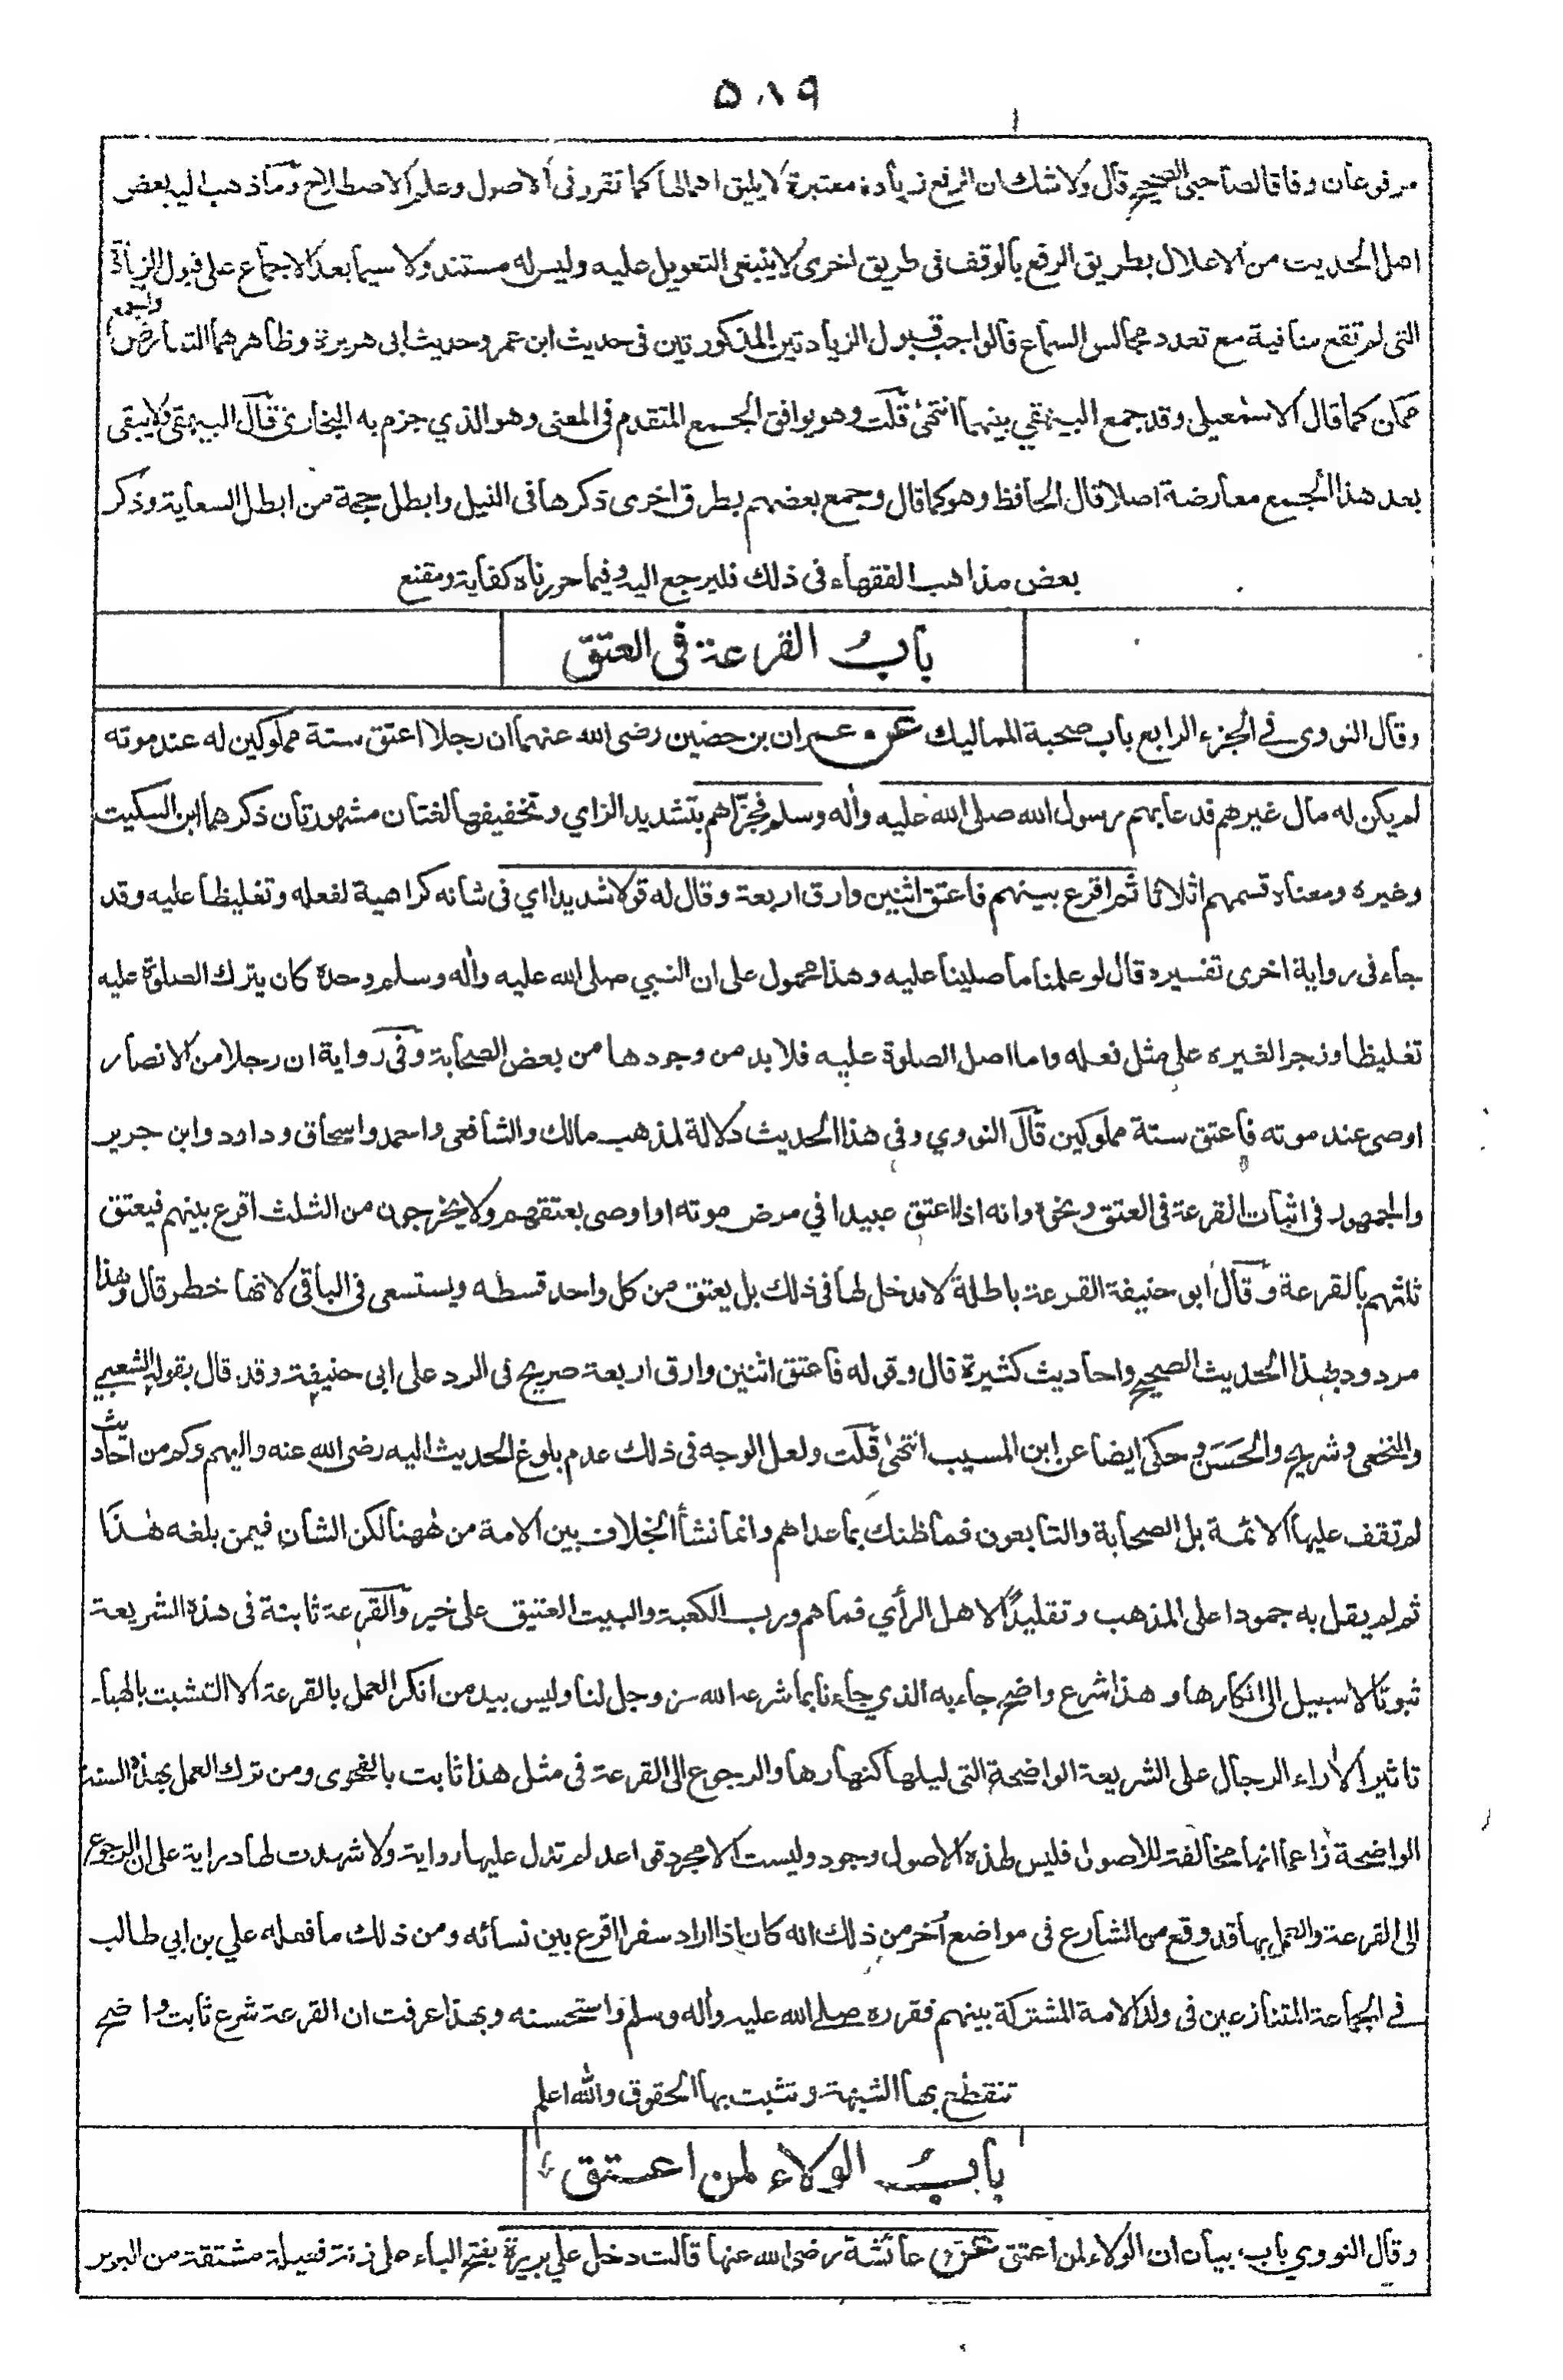 ٥٨٩
مرفوعان وفاقا لصاحبي الصحيح قال ولا شك ان الرفع زيادة معتبرة لا يليق اهمالها كما تقرر في الاصول وعلم الاصطلاح وما ذهب اليه بعض
اهل الحديث من الاعلال بطريق الرفع بالوقف في طريق اخرى لا ينبغي التعويل عليه وليس له مستند ولا سيما بعد الاجماع على قبول الزيادة
التي لم تقع منافية مع تعدد مجالس السماع فالواجب قبول الزيادتين المذكورتين في حديث ابن عمر وحديث ابي هريرة وظاهرهما التعارض والجمع
ممكن كما قال الاسمعيلي وقد جمع البيهقي بينهما انتهى قلت وهو يوافق الجمع المتقدم في المعنى وهو الذي جزم به البخاري قال البيهقي ولا يبقى
بعد هذا الجمع معارضة اصلا قال الحافظ وهو كما قال وجمع بعضهم بطرق اخرى ذكرها في النيل وابطل حجة من ابطل السعاية وذكر
بعض مذاهب الفقهاء في ذلك فليرجع اليه وفيما حررناه كفاية ومقنع
باب القرعة في العتق
وقال النووي في الجزء الرابع باب صحبة المماليك عن عمران بن حصين رضي الله عنهما ان رجلا اعتق ستة مملوكين له عند موته
لم يكن له مال غيرهم فدعا بهم رسول الله صلى الله عليه وأله وسلم فجزّاهم بتشديد الزاي وتخفيفها لغتان مشهورتان ذكرهما ابن السكيت
وغيره ومعناه قسمهم اثلاثا ثم اقرع بينهم فاعتق اثنين وارق اربعة وقال له قولا شديدا اي في شانه كراهية لفعله وتغليظا عليه وقد
جاء في رواية اخرى تفسيره قال لو علمنا ما صلينا عليه وهذا محمول على ان النبي صلى الله عليه وأله وسلم وحده كان يترك الصلوة عليه
تغليظا وزجرا لغيره على مثل فعله واما اصل الصلوة عليه فلا بد من وجودها من بعض الصحابة وفي رواية ان رجلا من الانصار
اوصى عند موته فاعتق ستة مملوكين قال النووي وفي هذا الحديث دلالة لمذهب مالك والشافعي واحمد واسحاق وداود وابن جرير
والجمهور في اثبات القرعة في العتق ونحوه وانه اذا اعتق عبيدا في مرض موته او اوصى بعتقهم ولا يخرجون من الثلث اقرع بينهم فيعتق
ثلثهم بالقرعة وقال ابو حنيفة القرعة باطلة لا مدخل لها في ذلك بل يعتق من كل واحد قسطه ويستسعى في الباقي لانها خطر قال وهذا
مردود بهذا الحديث الصحيح واحاديث كثيرة قال وقوله فاعتق اثنين وارق اربعة صريح في الرد على ابي حنيفة وقد قال بقوله الشعبي
والنخعي وشريح والحسن وحكى ايضا عن ابن المسيب انتهى قلت ولعل الوجه في ذلك عدم بلوغ الحديث اليه رضي الله عنه واليهم وكم من احاديث
لم تقف عليها الائمة بل الصحابة والتابعون فما ظنك بما عداهم وانما نشأ الخلاف بين الامة من ههنا لكن الشان فيمن بلغه هذا
ثم لم يقل به جمودا على المذهب وتقليدًا لاهل الرأي فما هم ورب الكعبة والبيت العتيق على خير والقرعة ثابتة في هذه الشريعة
ثبوتا لا سبيل الى انكارها وهذا شرع واضح جاء به الذي جاءنا بما شرعه الله عز وجل لنا وليس بيد من انكر العمل بالقرعة الا التشبث بالهباء
تاثيرا لاراء الرجال على الشريعة الواضحة التي ليلها كنهارها والرجوع الى القرعة في مثل هذا ثابت بالفحوى ومن ترك العمل بهذه السنة
الواضحة زاعما انها مخالفة للاصول فليس لهذه الاصول وجود وليست الا مجرد قواعد لم تدل عليها رواية ولا شهدت لها دراية على ان الرجوع
الى القرعة والعمل بها قد وقع من الشارع في مواضع أخر من ذلك انه كان اذا اراد سفرا اقرع بين نسائه ومن ذلك ما فعله علي بن ابي طالب
في الجماعة المتنازعين في ولد الامة المشتركة بينهم فقرره صلى الله عليه وأله وسلم واستحسنه وبهذا عرفت ان القرعة شرع ثابت واضح
تنقطع بها الشبهة وتثبت بها الحقوق والله اعلم
باب الولاء لمن اعتق
وقال النووي باب بيان ان الولاء لمن اعتق عن عائشة رضي الله عنها قالت دخل علي بريرة بفتح الباء على زنة فعيلة مشتقة من البرير